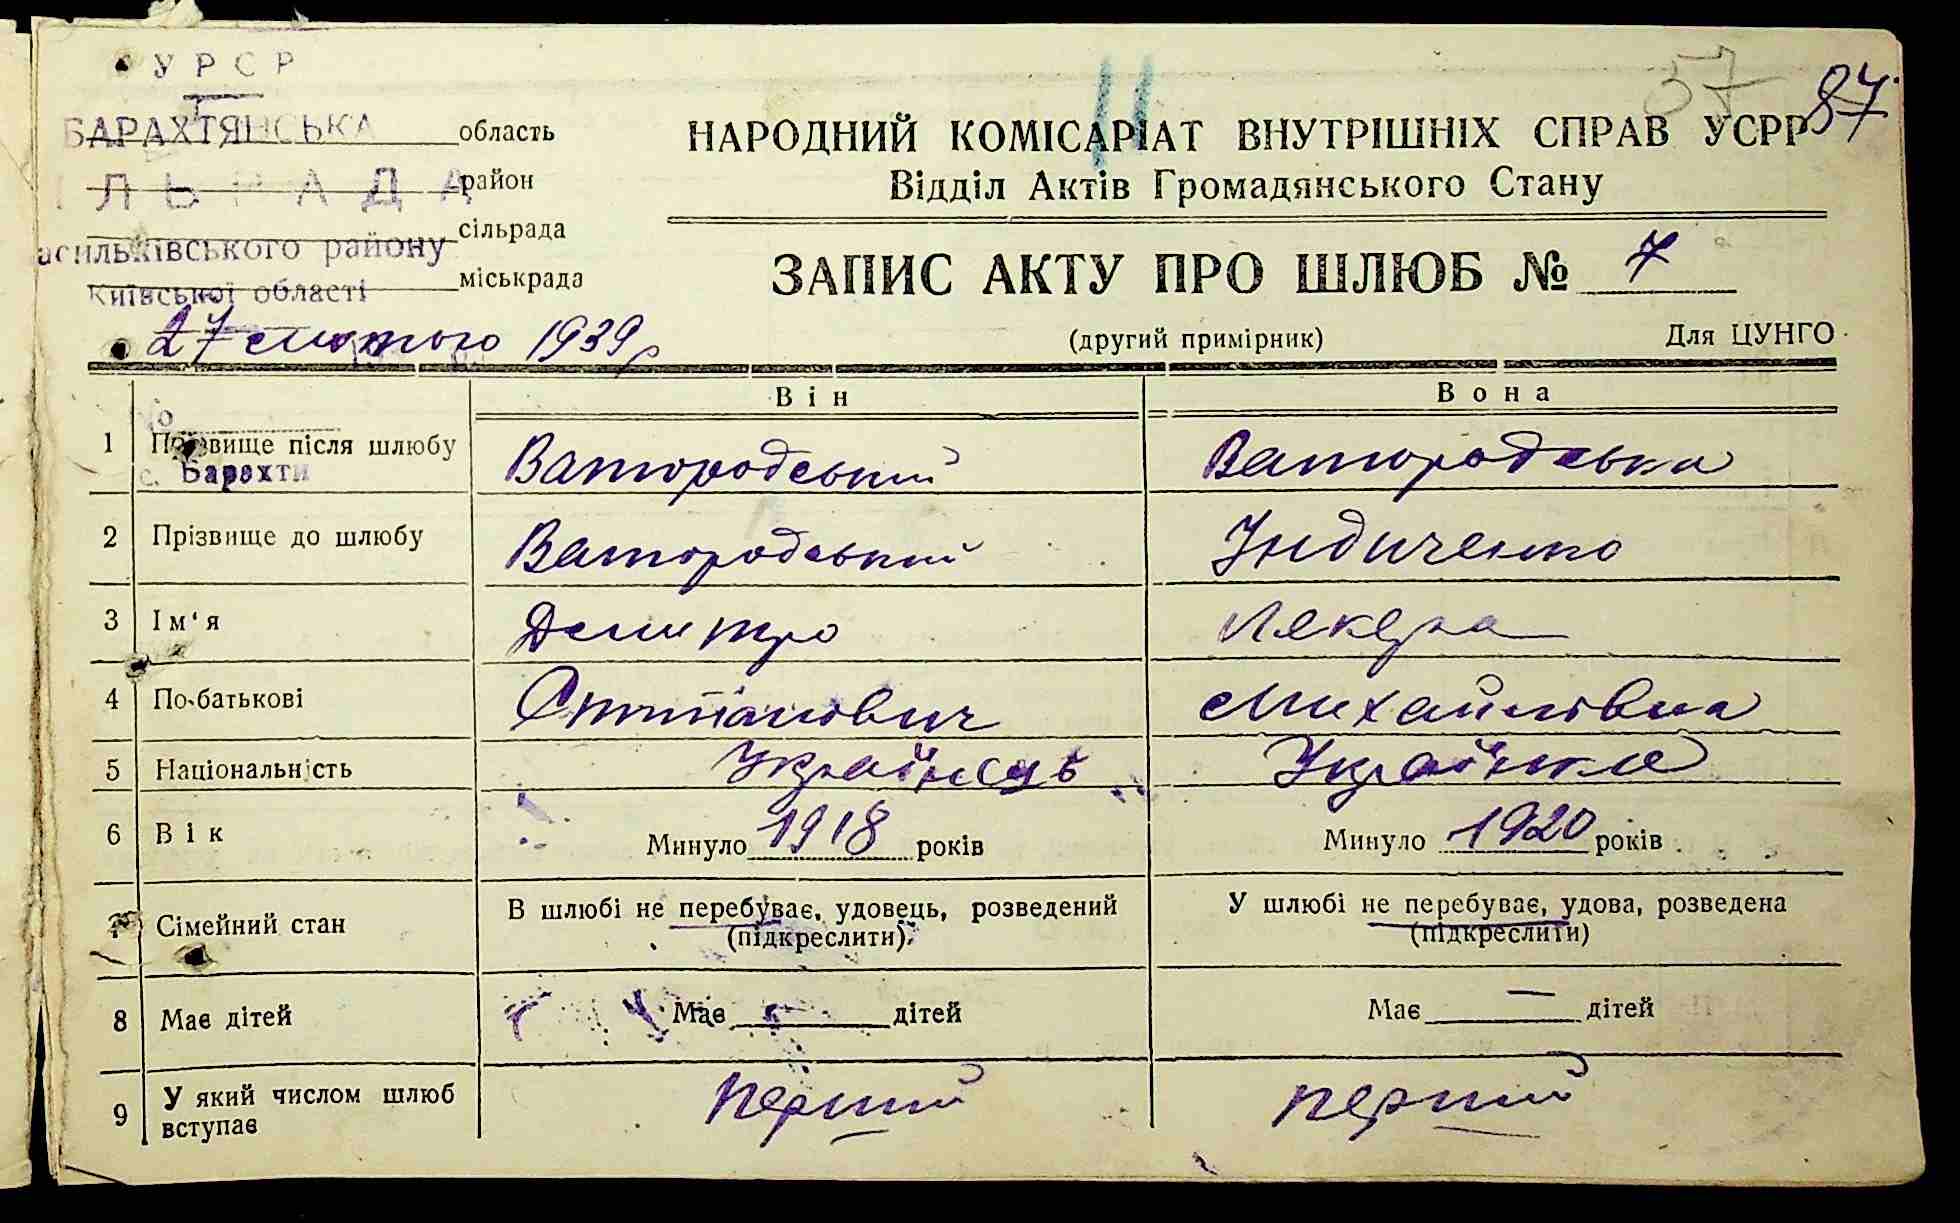 УРСР
БАРАХТЯНСЬКА область
район
сільрада
асильківського району
міськрада
Київської області
27 лютого 1939 р
57 87
НАРОДНИЙ КОМІСАРІАТ ВНУТРІШНІХ СПРАВ УСРР
Відділ Актів Громадянського Стану
ЗАПИС АКТУ ПРО ШЛЮБ № 7
(другий примірник) Для ЦУНГО
Він Вона
1 Прізвище після шлюбу Ватородський Ватородська
с. Барахти
2 Прізвище до шлюбу Ватородський Індиченко
3 Ім'я Демитро Лекера
4 По-батькові Степанович Михайлівна
5 Національність Українець Українка
6 Вік Минуло 1918 років Минуло 1920 років
7 Сімейний стан В шлюбі не перебуває, удовець, розведений (підкреслити) У шлюбі не перебуває, удова, розведена (підкреслити)
8 Має дітей Має дітей Має — дітей
9 У який числом шлюб вступає перший перший